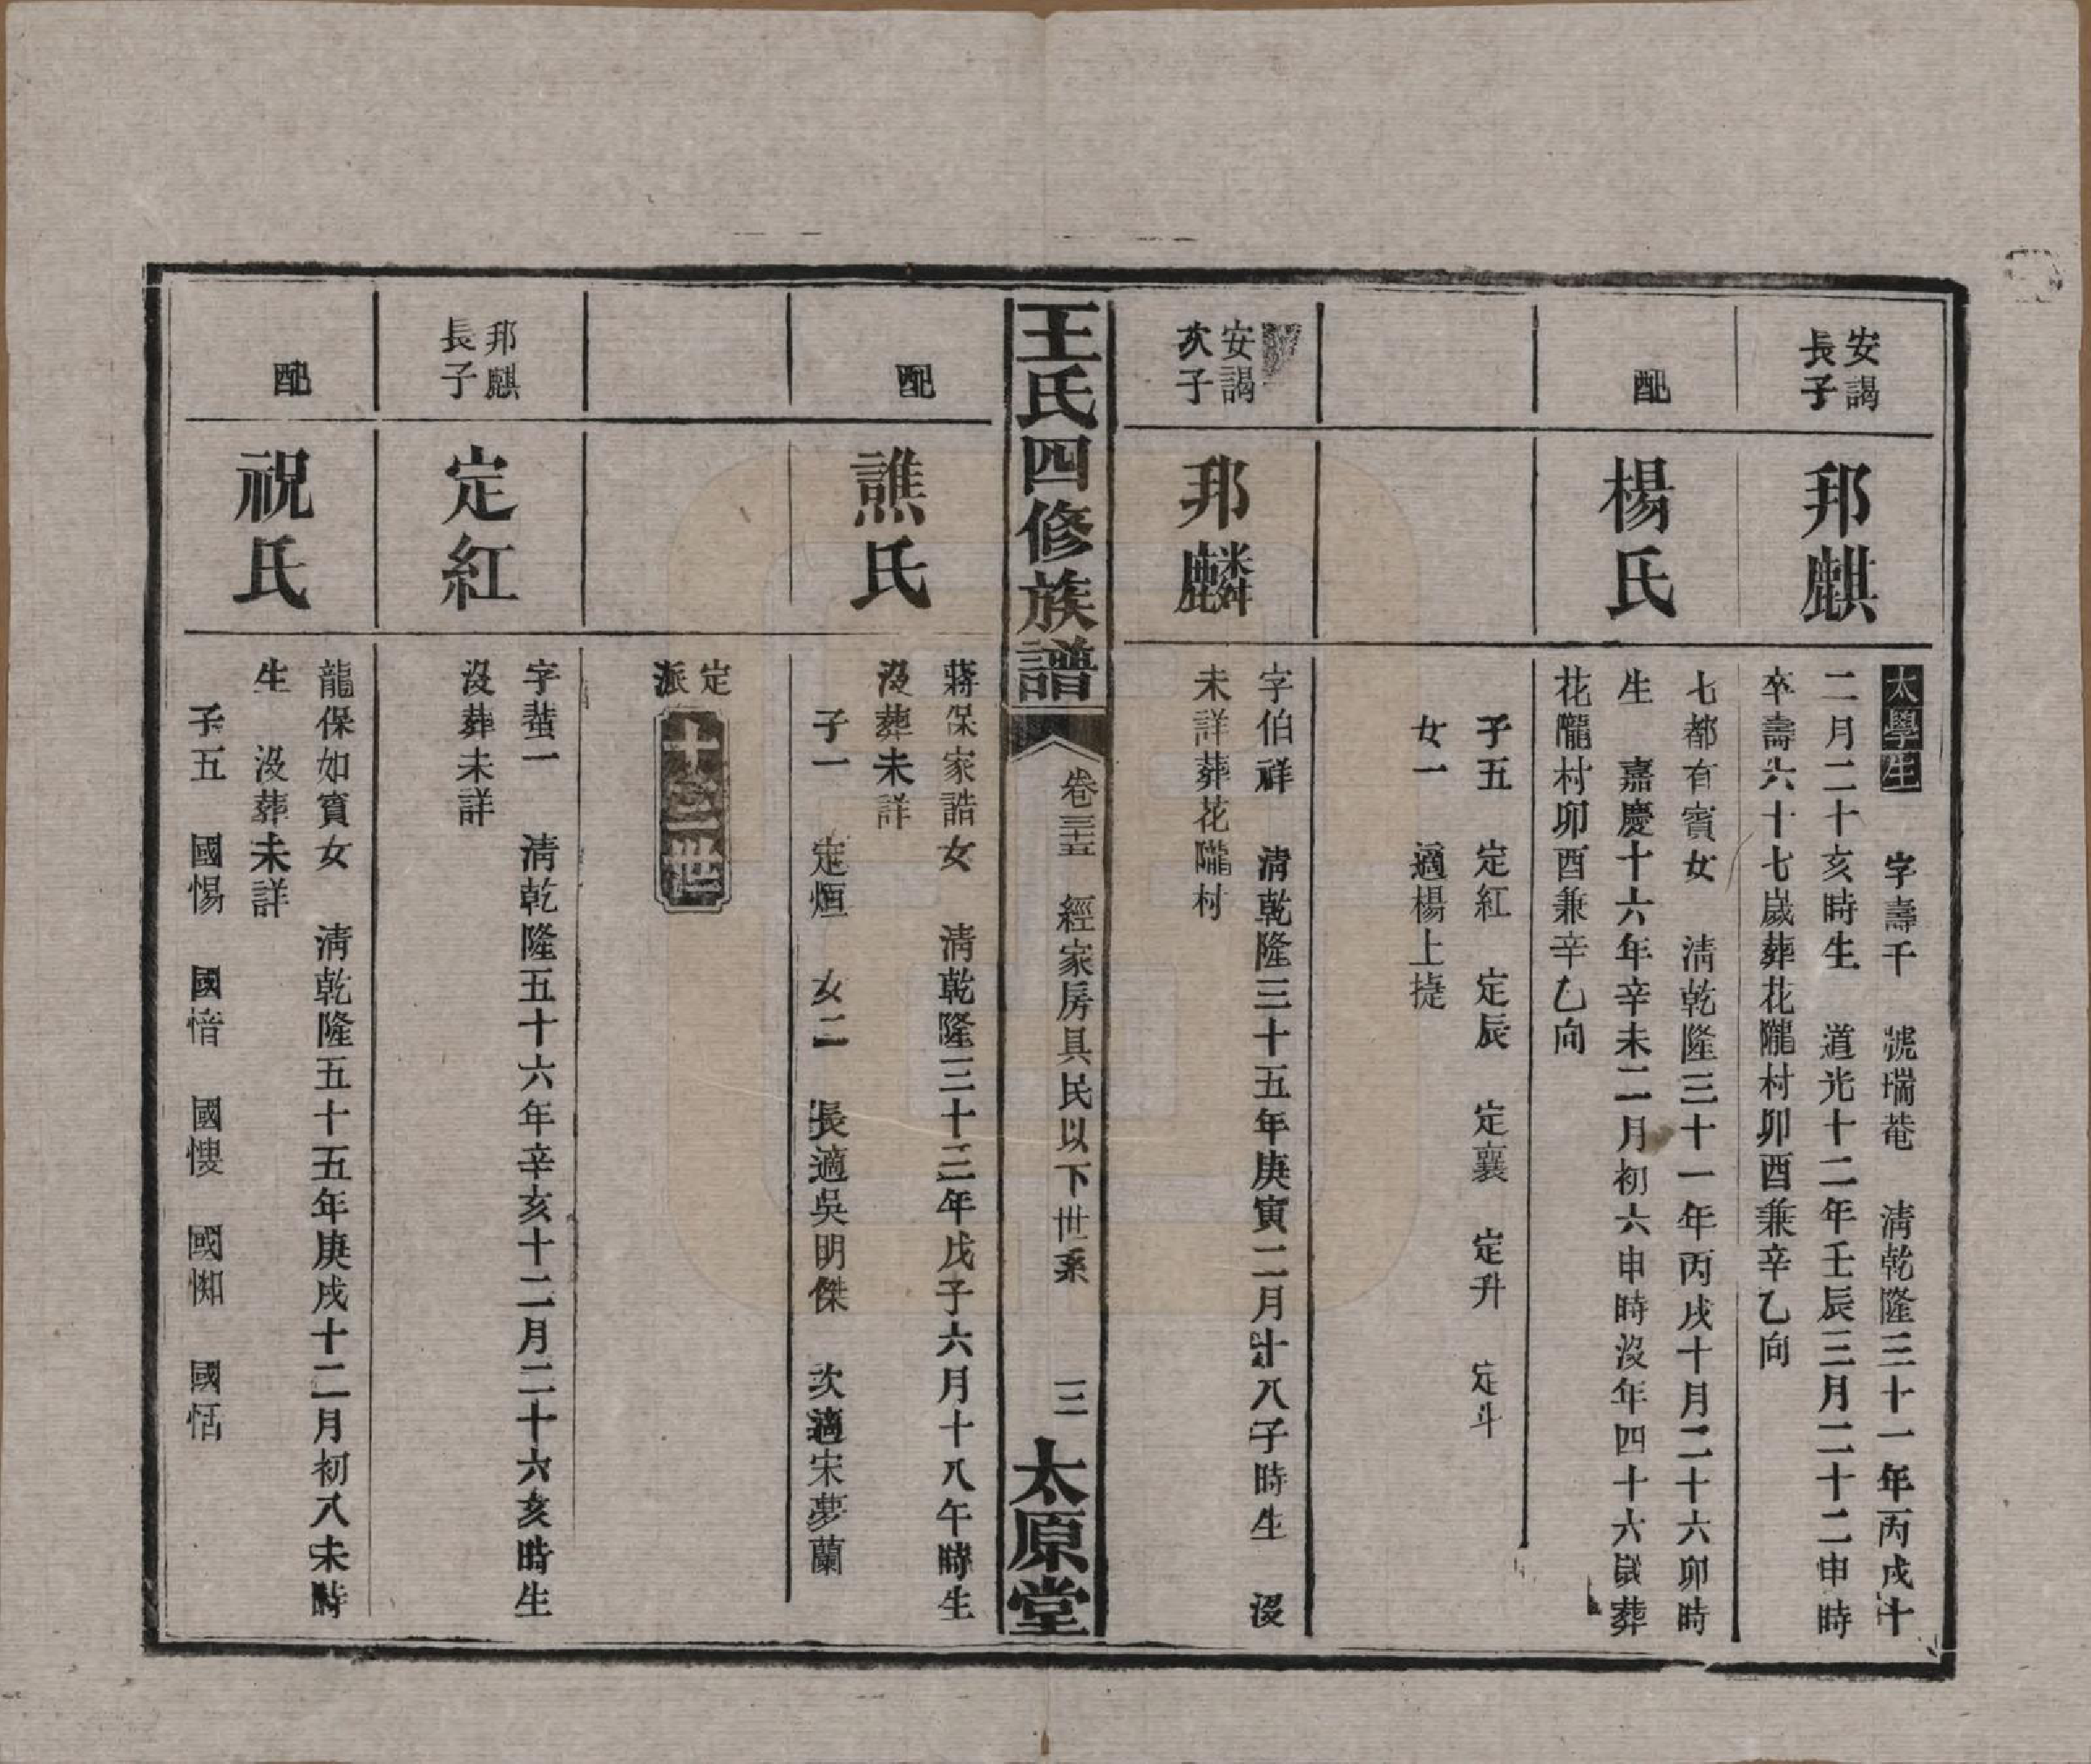 安謁
長子
邦麒
太學生　字壽千　號瑞菴　淸乾隆三十一年丙戌十
二月二十亥時生　道光十二年壬辰三月二十二申時
卒壽六十七歲葬花隴村卯酉兼辛乙向
配
楊氏
七都有賓女　淸乾隆三十一年丙戌十月二十六卯時
生　嘉慶十六年辛未二月初六申時沒年四十六歲葬
花隴村卯酉兼辛乙向
子五　定紅　定辰　定襄　定升　定斗
女一　適楊上捷
安謁
次子
邦麟
字伯祥　淸乾隆三十五年庚寅二月廿八子時生　沒
未詳葬花隴村
王氏四修族譜
卷三十五　經家房具民以下世系　三
太原堂
配
譙氏
蔣保家誥女　淸乾隆三十三年戊子六月十八午時生
沒葬未詳
子一　定烜　女二　長適吳明傑　次適宋夢蘭
定
派
十三世
邦麒
長子
定紅
字蜚一　淸乾隆五十六年辛亥十二月二十六亥時生
沒葬未詳
配
祝氏
龍保如賓女　淸乾隆五十五年庚戌十二月初八未時
生　沒葬未詳
子五　國惕　國愔　國慺　國㥛　國恬